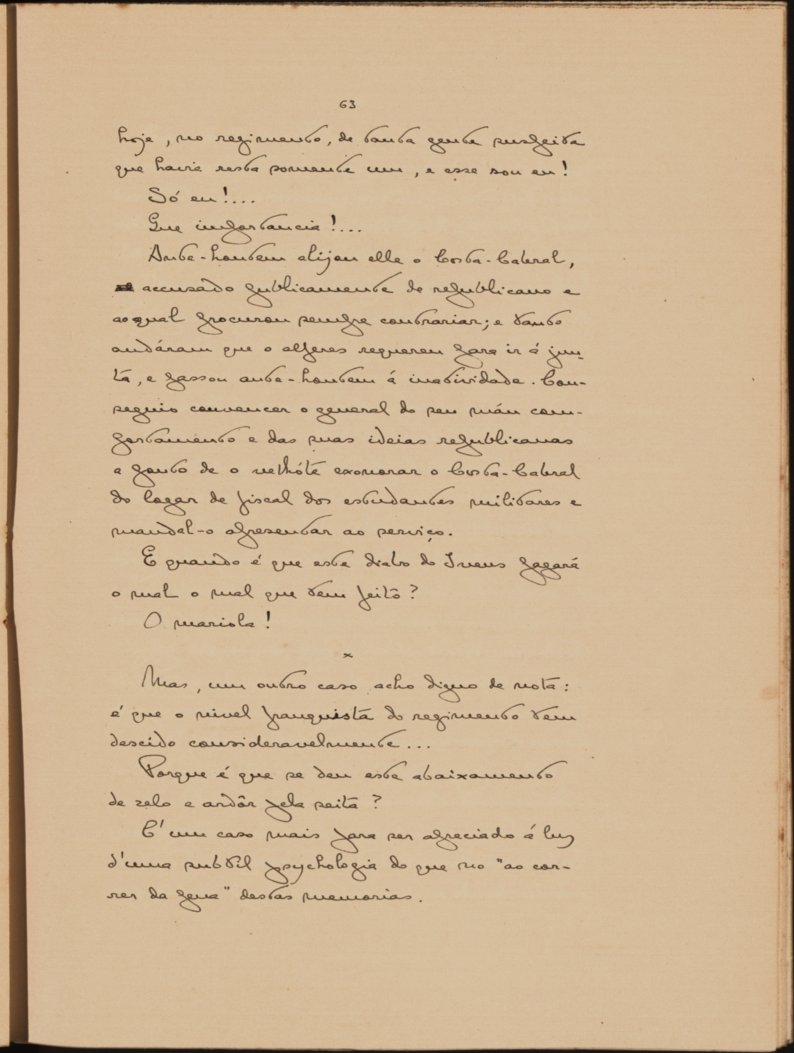 63
hoje, no regimento, de tanta gente suspeita
que havia resta somente um, e esse sou eu!
Só eu!...
Que importancia!...
Ante-hontem alijou elle o Costa-Cabral,
accusado publicamente de republicano e
ao qual procurou sempre contrariar; e tanto
andáram que o alferes requereu para ir á jun-
ta, e passou ante-hontem á inatividade. Con-
seguio convencer o general do seu máu com-
portamento e das suas ideias republicanas
a ponto de o velhóte exonerar o Costa-Cabral
do logar de fiscal dos estudantes militares e
mandal-o apresentar ao serviço.
E quando é que este diabo do Ivens pagará
o mal o mal que tem feito?
O mariola!
x
Mas, um outro caso acho digno de nota:
é que o nivel franquista do regimento tem
descido consideravelmente...
Porque é que se deu este abaixamento
de zelo e ardôr pela seita?
E' um caso mais para ser apreciado á luz
d'uma subtil psychologia do que no "ao cor-
rer da pena" destas memorias.